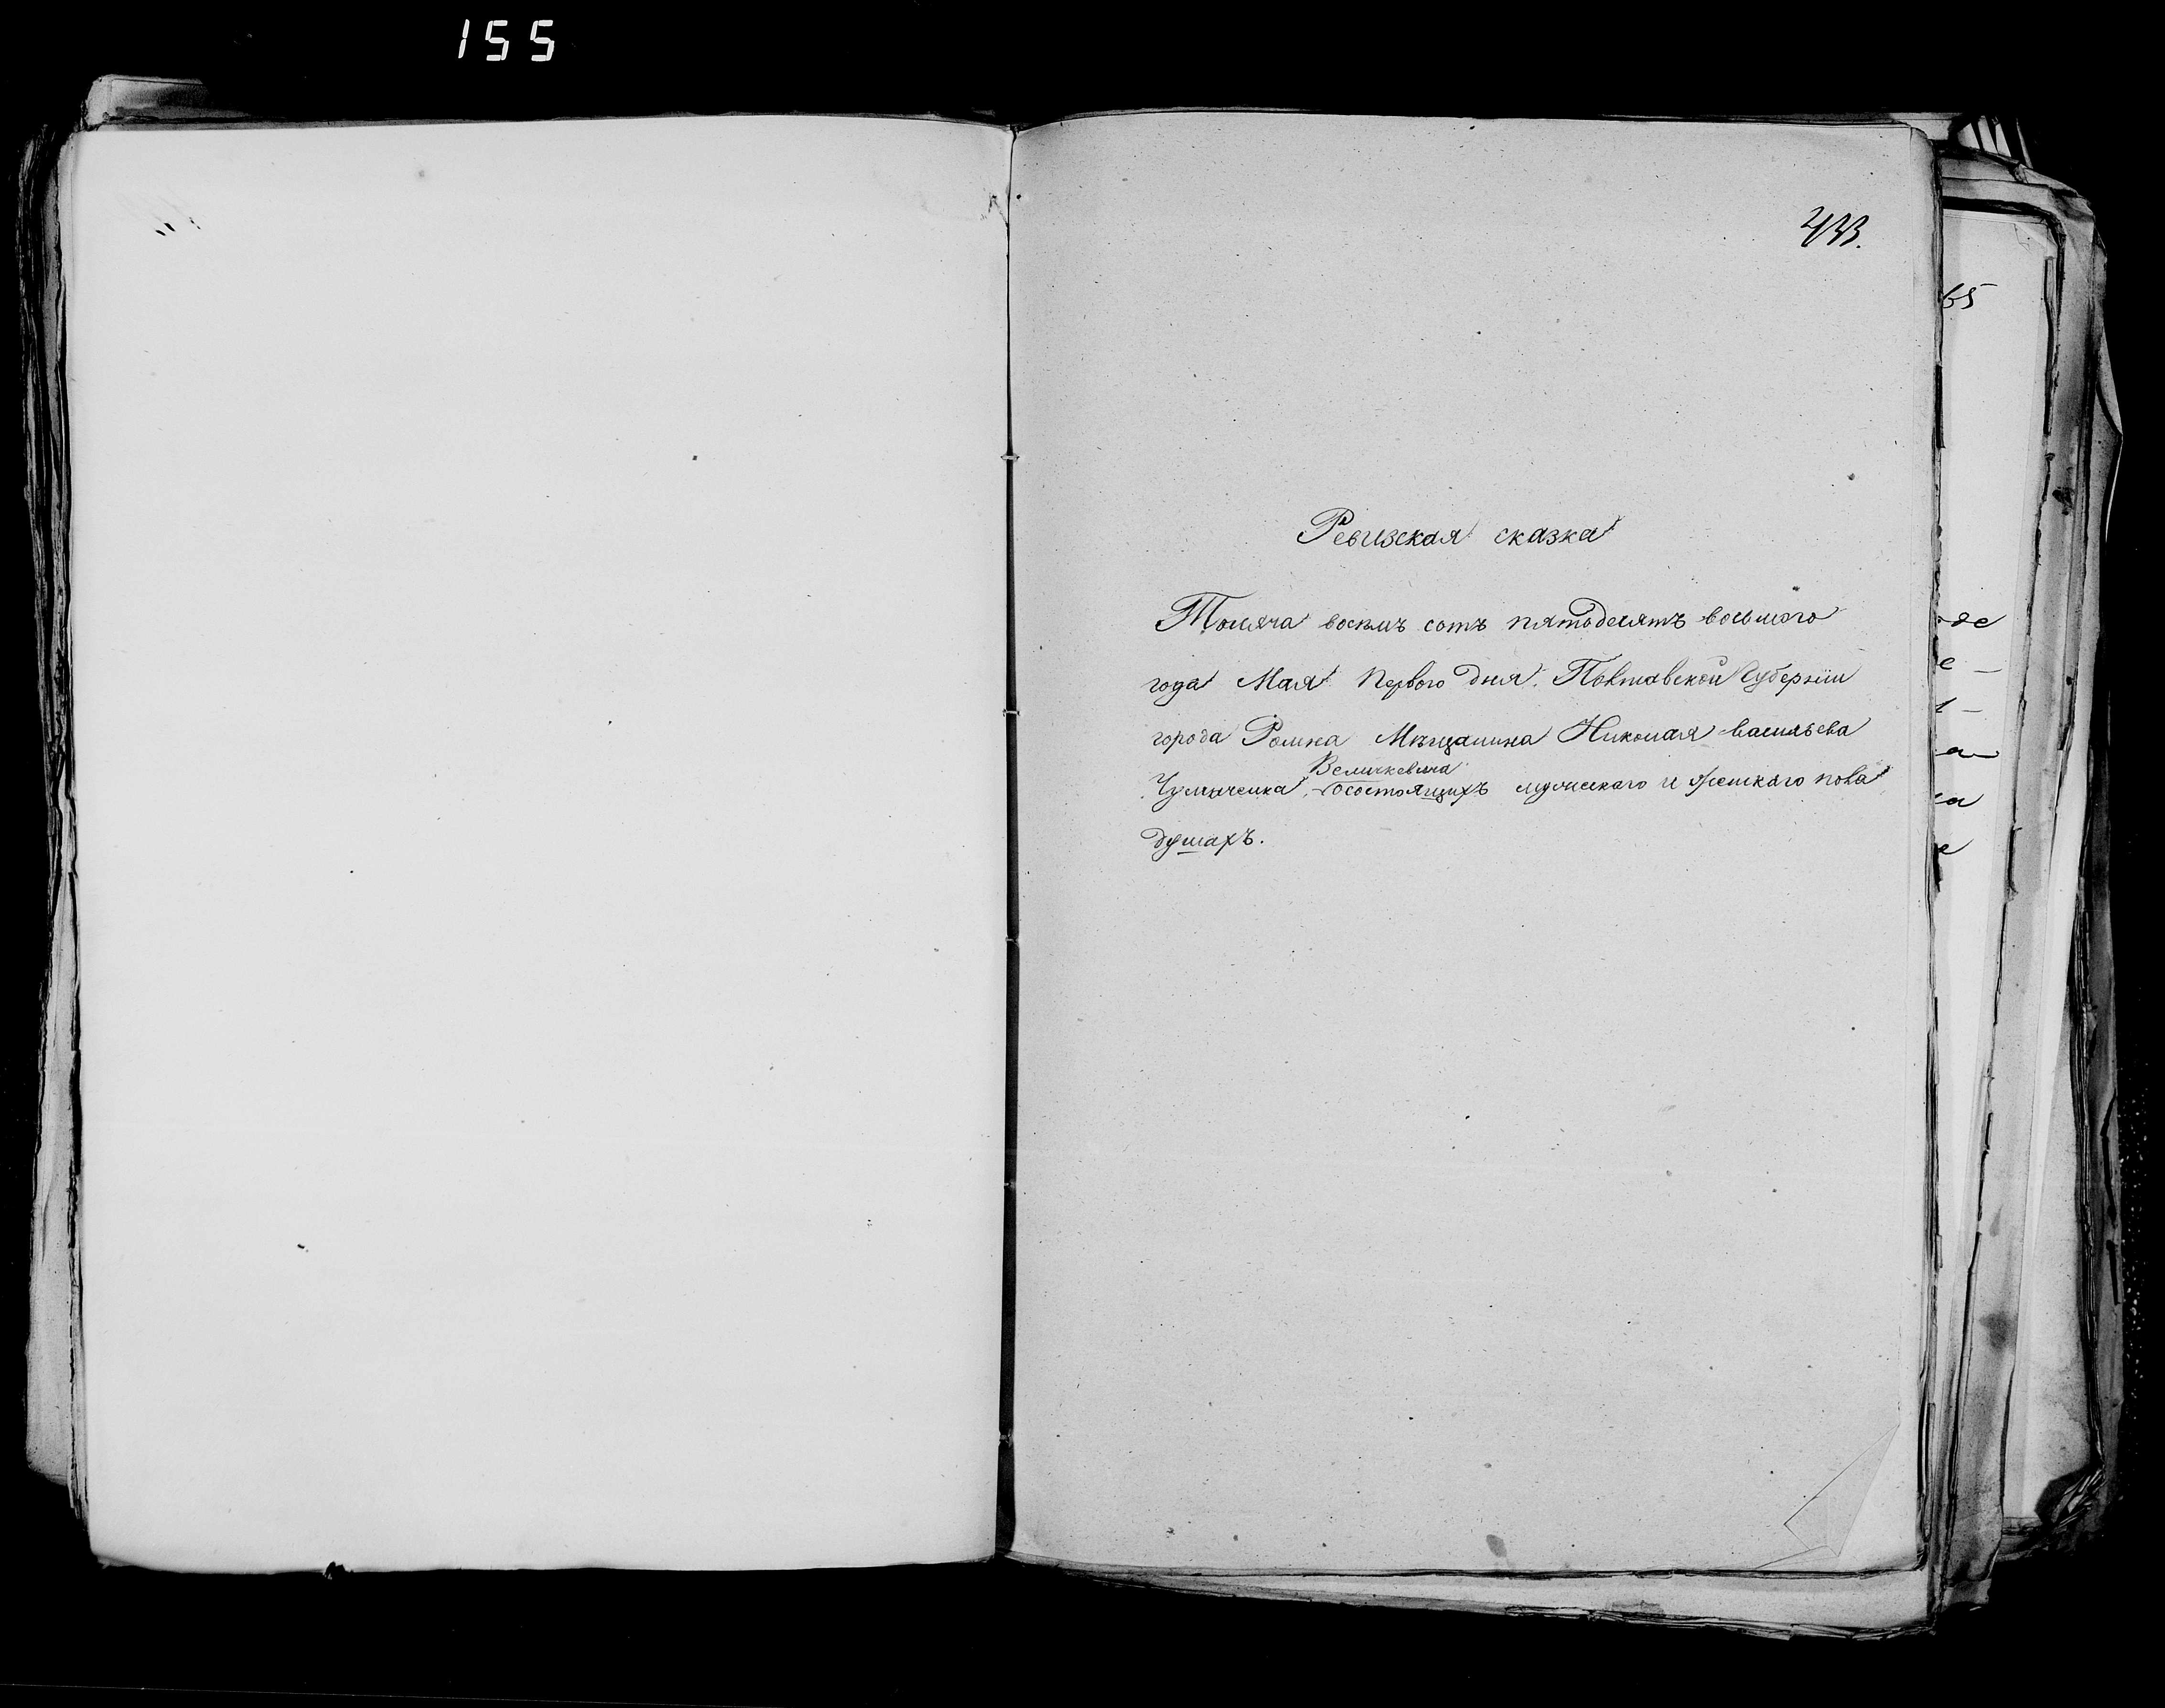 155
433.
65
Ревизская сказка
Тысяча восемь сотъ пятьдесятъ восьмого
года Мая Первого дня. Полтавской Губерніи
города Ромна Мѣщанина Николая васильева
Величкевича
состоящихъ мужескаго и женскаго пола
душахъ.